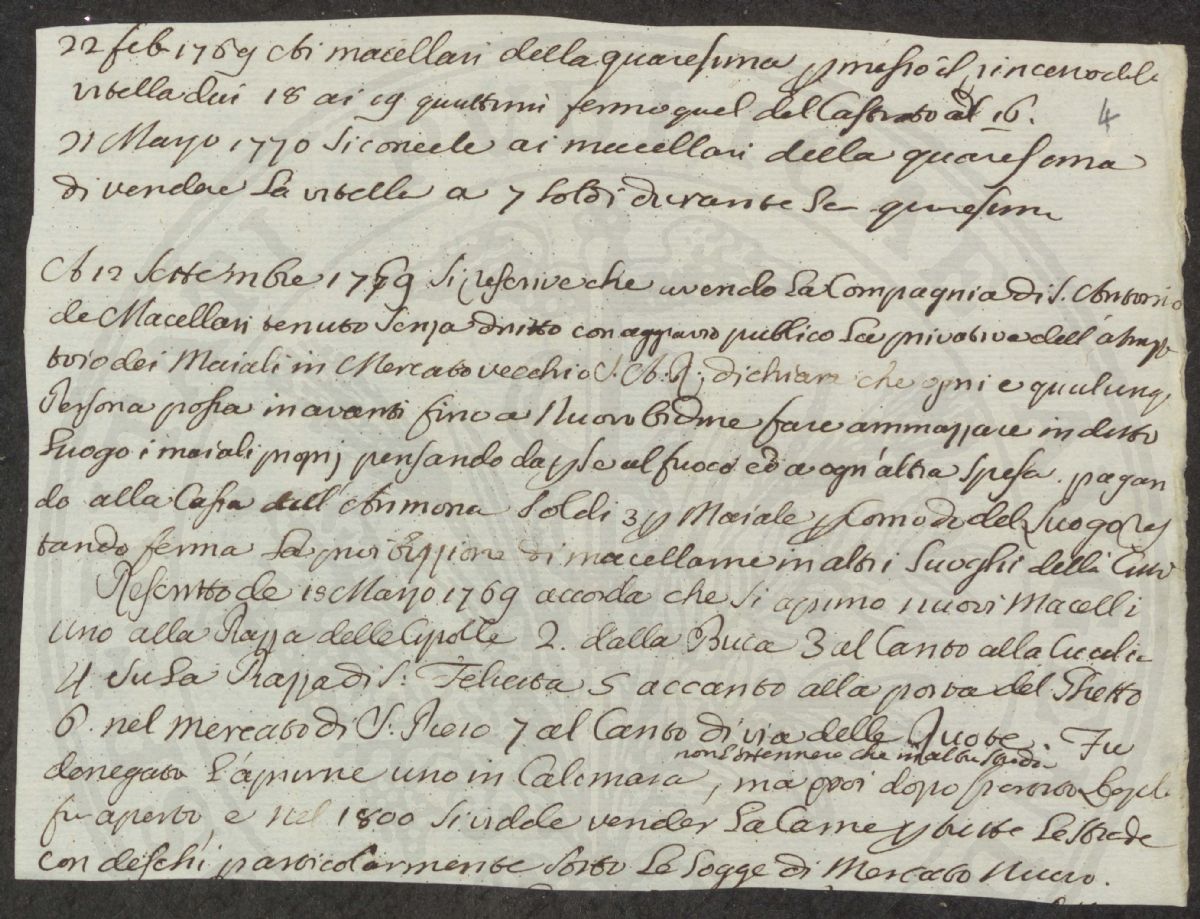 22 feb 1769 Ai macellari della quaresima permesso il rincero della
vitella dai 18 ai 19 quattrini fermo quel del Castrato al 16.
4
21 Marzo 1770 Si concede ai macellari della quaresima
di vendere la vitella a 7 soldi durante la quaresima
A 12 Settembre 1769 Si rescrive che avendo la Compagnia di S. Antonio
de Macellari tenuto senza dritto con aggravio publico la privativa dell'amaz
toio dei Maiali in Mercato vecchio S. A. R. dichiara che ogni e qualunq.
Persona possa in avanti fino a Nuovo ordine fare ammazzare in detto
Luogo i maiali propj pensando da per se al fuoco ed a ogn'altra spesa. pagan
do alla Cassa dell'Annona Soldi 3 per Maiale per comodo del Luogo res
tando ferma la proibizione di macellarne in altri Luoghi della Città
Rescritto de 18 Marzo 1769 accorda che si aprino nuovi Macelli
uno alla Piazza delle Cipolle 2. dalla Buca 3 al Canto alla Cuculia
4 Su la Piazza di S. Felicita 5 accanto alla porta del Ghetto
6. nel mercato di S. Piero 7 al Canto di via delle Ruote. Fu
non s'ottennero che in altre strade
denegato l'aprirne uno in Calimara, ma poi dopo
fu aperto, e nel 1800 si vidde vender la Carne per tutte le strade
con deschi particolarmente sotto le Logge di Mercato Nuovo.